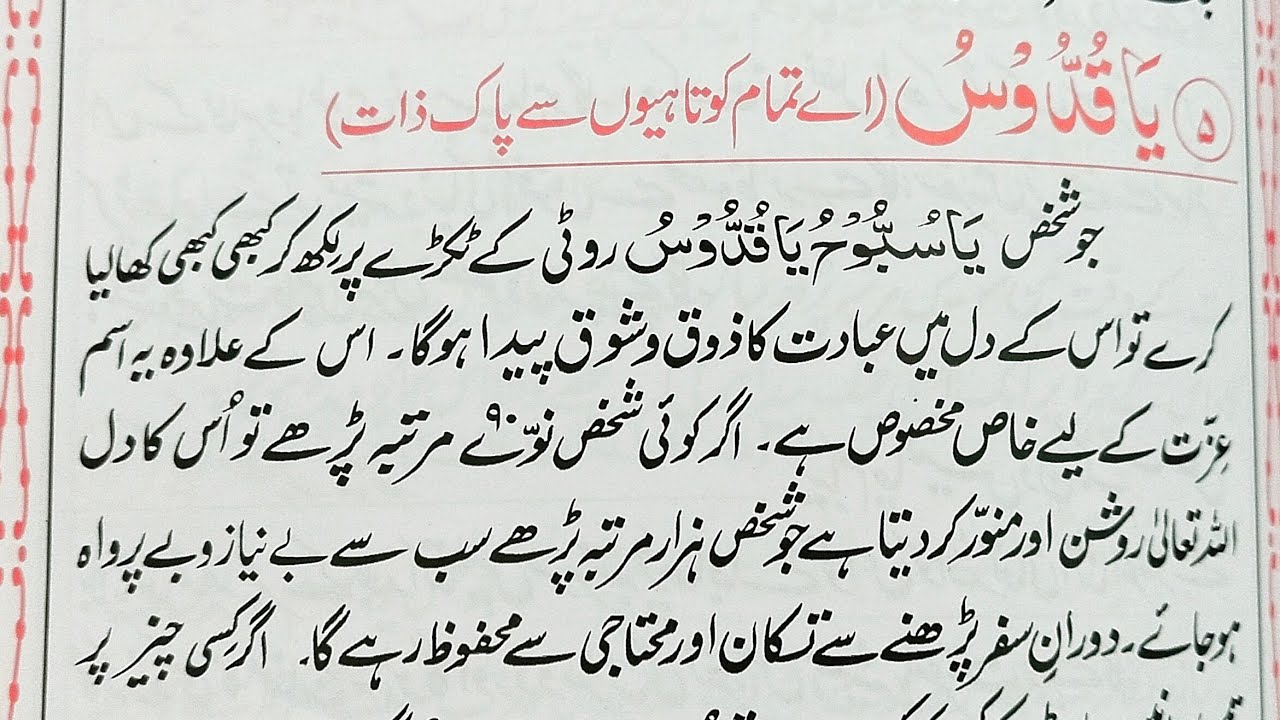 ۵ یَا قُدُّوْسُ (اے تمام کوتاہیوں سے پاک ذات)
جو شخص یَا سُبُّوْحُ یَا قُدُّوْسُ روٹی کے ٹکڑے پر لکھ کر کبھی کبھی کھا لیا
کرے تو اس کے دل میں عبادت کا ذوق و شوق پیدا ہوگا۔ اس کے علاوہ یہ اسم
عزّت کے لیے خاص مخصوص ہے۔ اگر کوئی شخص نوّے ۹۰ مرتبہ پڑھے تو اُس کا دل
اللہ تعالیٰ روشن اور منوّر کر دیتا ہے جو شخص ہزار مرتبہ پڑھے سب سے بے نیاز و بے پرواہ
ہو جائے۔ دورانِ سفر پڑھنے سے تسکان اور محتاجی سے محفوظ رہے گا۔ اگر کسی چیز پر